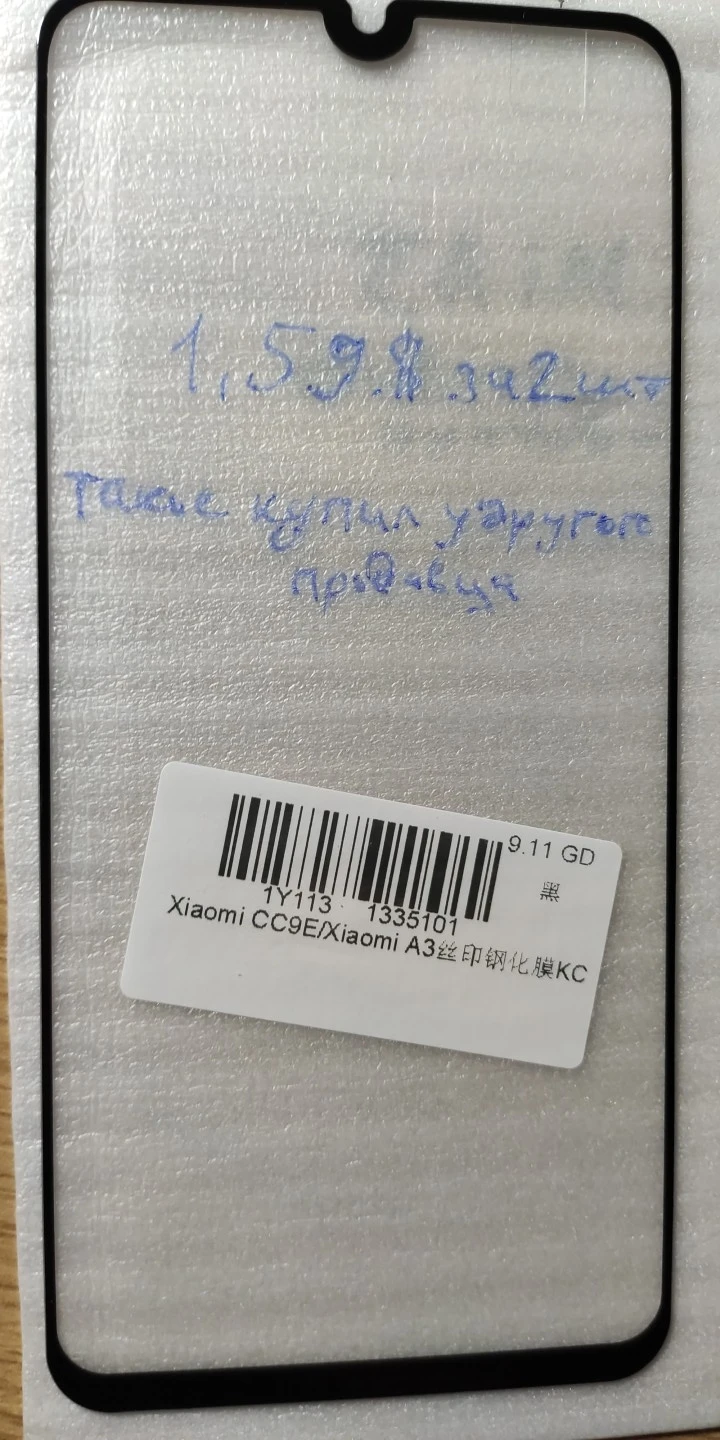 1,59.$ за 2 шт
такие купил у другого
продавца
9.11 GD
黑
1Y113 1335101
Xiaomi CC9E/Xiaomi A3丝印钢化膜KC